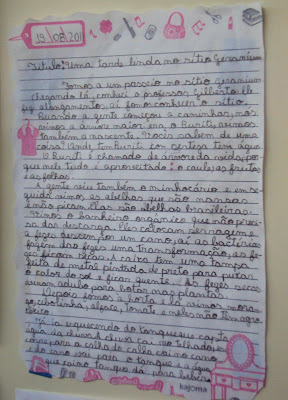 22/08/2011
Título: Uma tarde linda no sítio Geranium
Fomos a um passeio no sítio geranium
chegando lá conheci o professor Gilberto ele
fez alongamentos, aí fomos conhecer o sítio.
Quando a gente começou a caminhar, nós
vimos a árvore maior era o Buriti, vimos
também a nascente. Voces sabem de uma
coisa? Onde tem Buriti com certeza tem água
O Buriti é chamado de árvore da vida, por
que nele tudo é aproveitado: o caule, as frutas
e as folhas.
A gente viu também o minhocário e em se
guida vimos as abelhas que são mansas
e não picam. Elas são abelhas brasileiras.
Vimos o banheiro orgânico que não preci
sa dar descarga. Eles colocam serragem e
a fezes descem por um cano, aí as bactérias
fazem das fezes uma transformação, as fe
zes ficam secas. A caixa tem uma tampa
feita de metal pintado de preto para puxar
o calor do sol e ficar quente. As fezes secas
viram adubo para botar nas plantas.
Depois fomos à horta lá vimos moran
go, cebolinha, alface, tomate e neles não têm agro
tóxico.
Tô ia esquecendo do tanque que capta
água da chuva. A chuva cai no telhado,
corre para a calha da calha cai no cano
e do cano vai para o tanque e a água
que cai no tanque dá para beber
kajoma